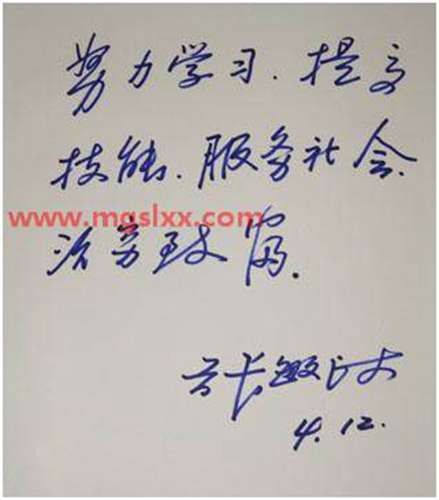 努力学习.提高
技能.服务社会.
www.mgslxx.com
治穷致富.
张
4.12.